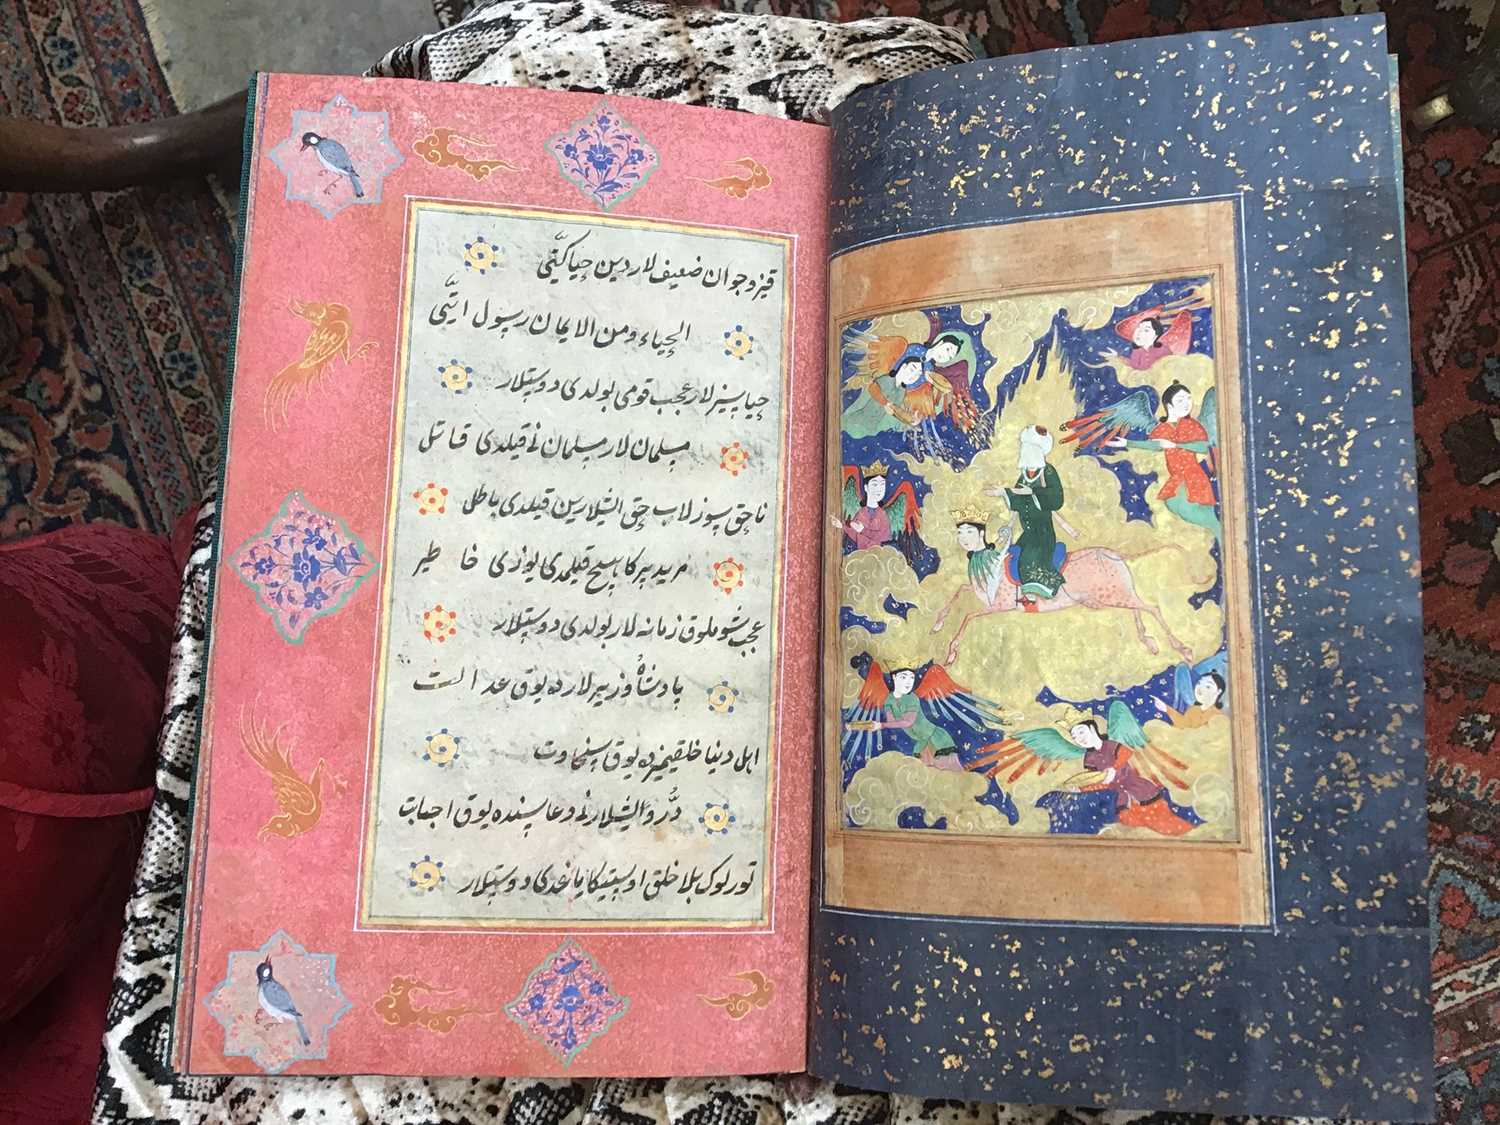 قیز و جوان ضعیف لاردین حیا کتّی
الحیاء و من الایمان رسول ایتّی
حیاسیز لار عجب قومی بولدی دوستلار
مسلمان لار مسلمان نی قیلدی قاتل
ناحق سوزلاب حق ایشلارین قیلدی باطل
مرید پیرکا هیچ قیلمدی یوزی خاطیر
عجب شوملوق زمانه لار بولدی دوستلار
پادشاه وزیرلارده یوق عدالت
اهل دنیا خلقیمیزده یوق سخاوت
دُرویشلارنی دعاسنده یوق اجابت
تورلوک بلا خلق اوستیکا یاغدی دوستلار